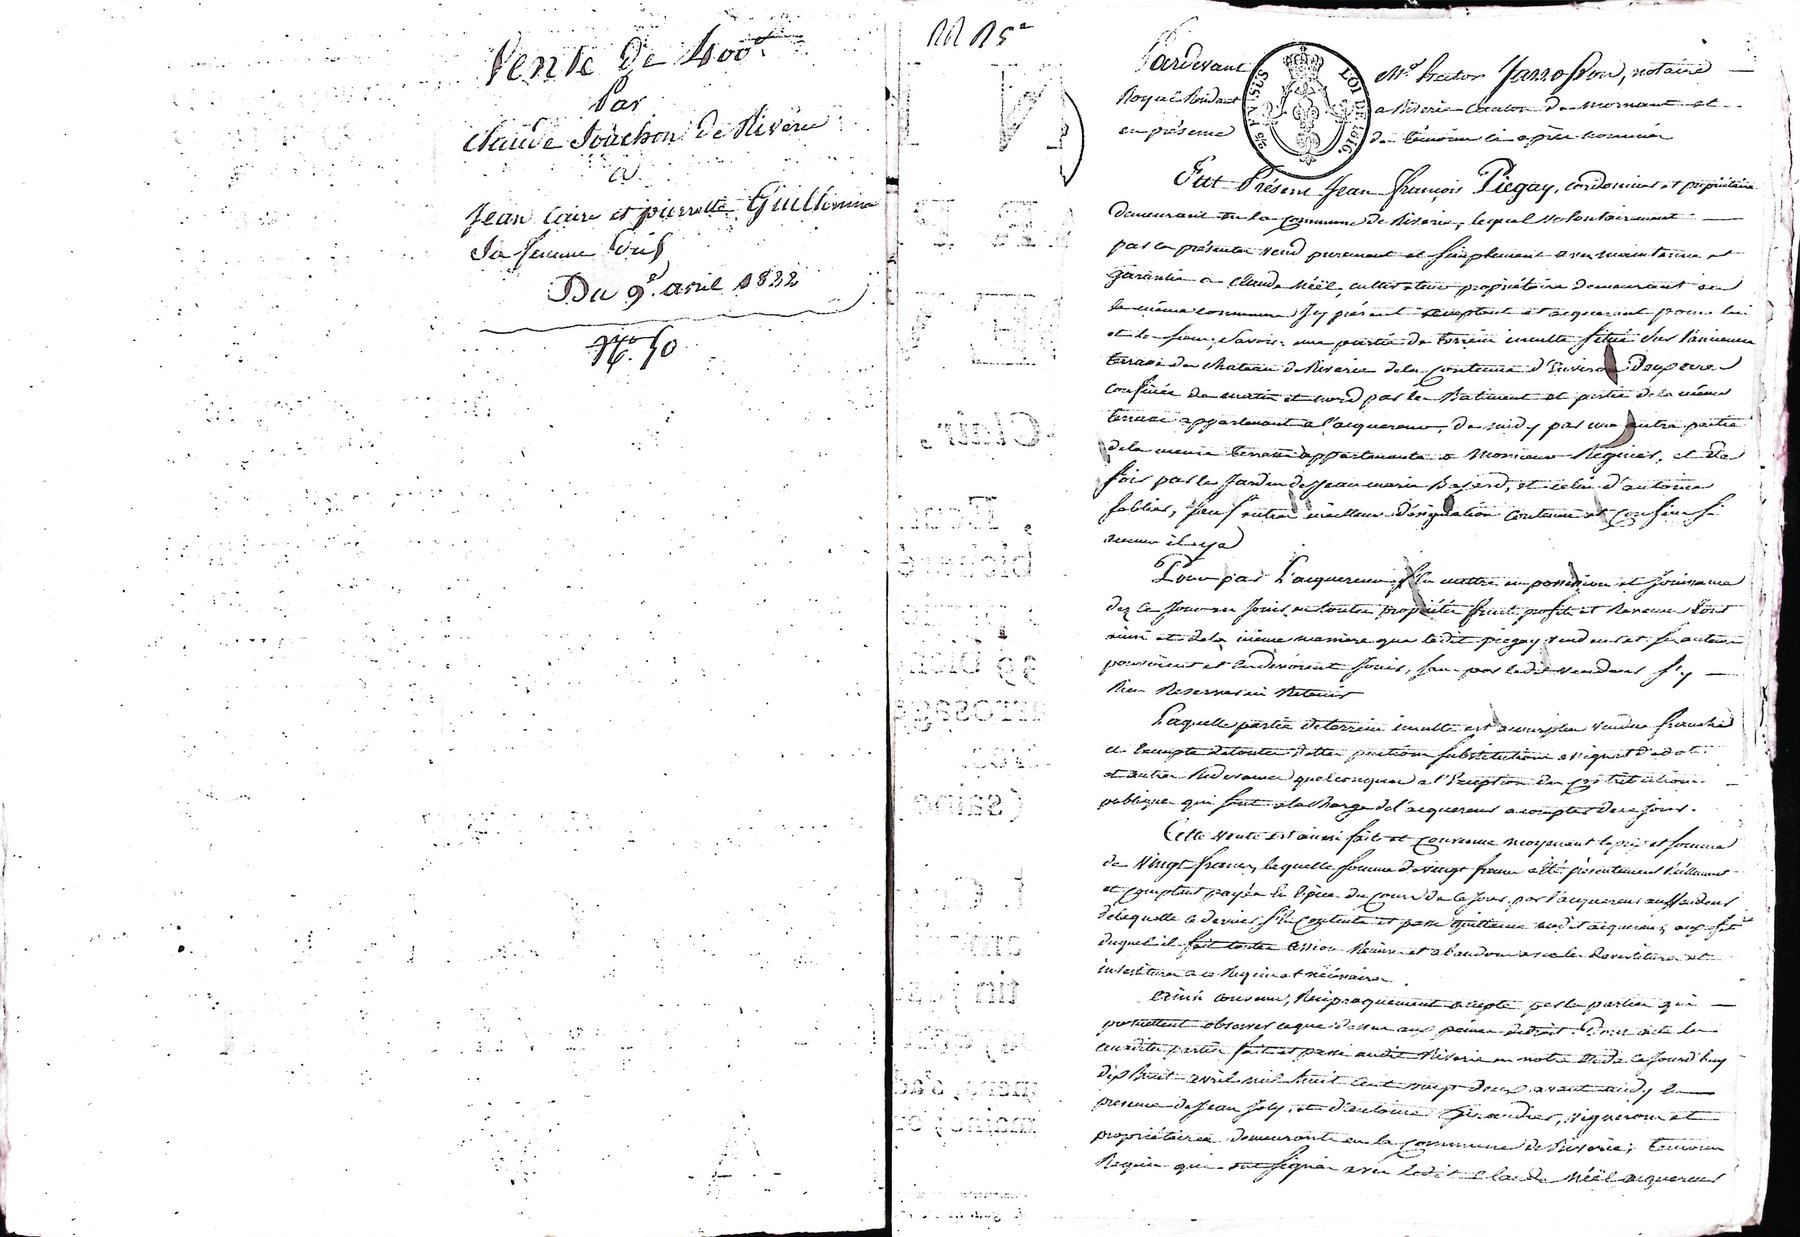 Vente de 400f
Par
Claude Jouchon de Riverie
a
Jean Caire et pierrette Guillermin
Sa femme
Du 9e. avril 1822
No. 50
Pardevant Me. hector Jarrosson, notaire
Royal Résidant a Riverie Canton de mornant et
en présence de témoins ci après nommés
25 P. % SUS LOI DE 1816.
Fut Présent Jean françois Piegay, cordonnier et propriétaire
demeurant en la commune de Riverie, lequel volontairement
par ces présentes vend purement et simplement avec maintenue et
garantie a Claude Néël, cultivateur propriétaire demeurant en
la même commune Icy présent acceptant et acquerant pour lui
et les siens, Savoir: une partie de terrein inculte située sur l'ancienne
terrasse du chateau de Riverie de la contenue d'Environ Deux ares
confinée de matin et nord par le Batiment et partie de la même
terrasse appartenant a l'acquereur, de midy par une autre partie
de la meme terrasse appartenante a Monsieur Regnier, et de
soir par le Jardin de Jean marie Bajard, et celui d'antoine
, sauf autre meilleure désignation contenue et confins si
aucun il y a
Pour par l'acquereur s'En mettre en possession et Jouissance
dez ce Jour en Jouir en toutes propriétés fruits profits et Revenus tout
ainsi et de la même maniere que ledit piegay vendeur et ses auteurs
pouvoient et En devoient Jouir, sans par ledit vendeur s'y
Rien Reserver ni Retenir
Laquelle partie de terrein inculte est au surplus vendue franche
et Exempte de toutes dettes pensions substitutions assignat d'edot
et autres Redevances quelconques a l'Exception des contributions
publiques qui sont a la charge de l'acquereur a compter de ce jour.
Cette vente est ainsi faite et convenue moyenant le prix et somme
de vingt francs, laquelle somme de vingt francs a Eté présentement réellement
et comptant payée En Espèces du cours de ce Jour par l'acquereur au Vendeur
de laquelle ce dernier s'Est contenté et passe quittance audit acquereur, au profit
duquel il fait toutes cession démise et abandon avec les devestiture et
investiture a ce Requises et nécéssaires.
Ainsi convenu, Réciproquement accepté par les parties qui
promettent observer ce que dessus aux peines de droit. Dont acte les
susdites parties fait et passé audit Riverie en notre Etude ce Jourd'huy
dix huit avril mil huit cent vingt deux avant midy En
presence de Jean Joly, et d'antoine Giraudier, vignerons et
propriétaires demeurants en la commune de Riverie, temoins
Requis qui ont signés avec ledit Claude Néël acquereur